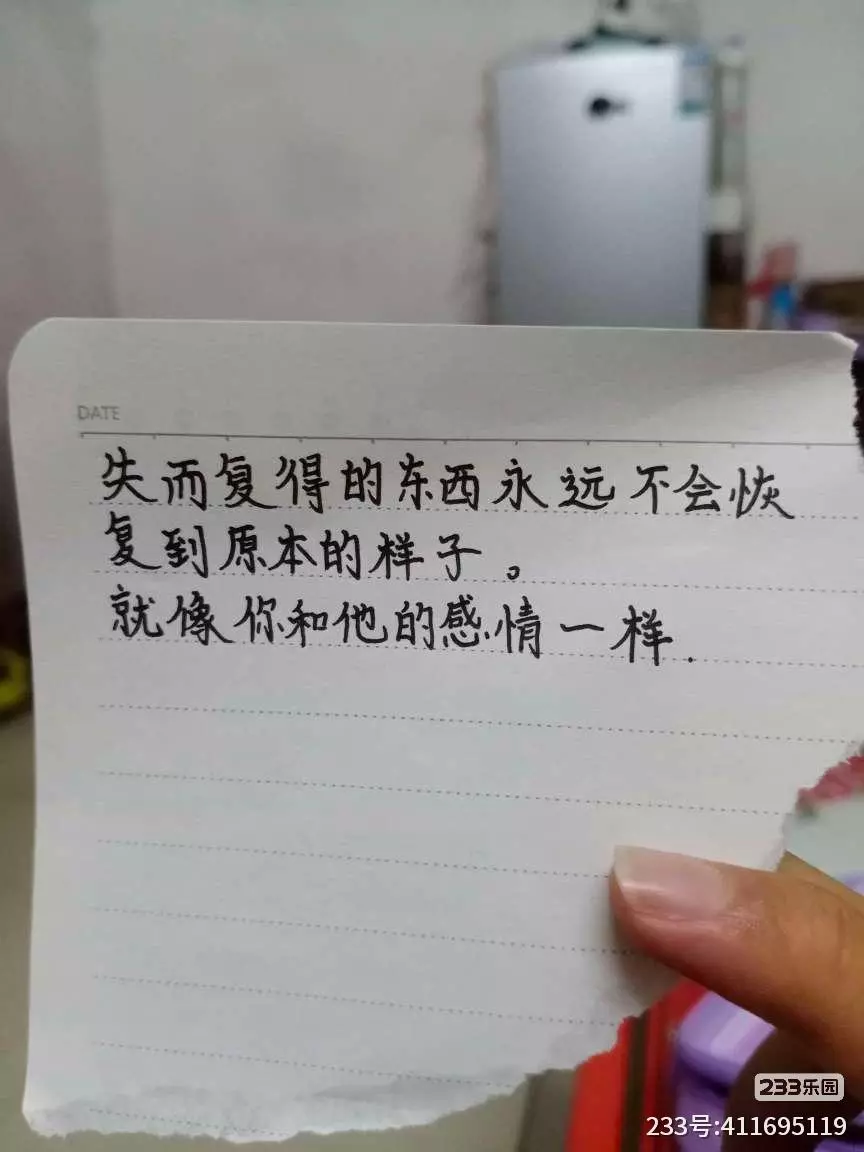 DATE
失而复得的东西永远不会恢
复到原本的样子。
就像你和他的感情一样.
233乐园
233号:411695119